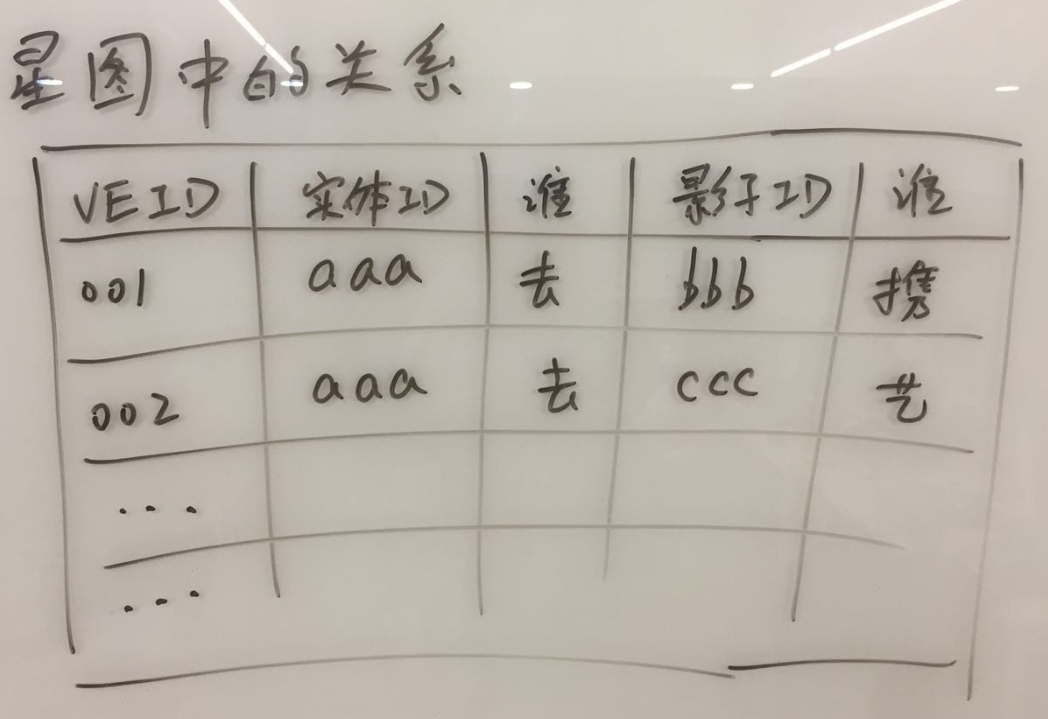 星图中的关系
VE ID 实体ID 谁 影子ID 谁
001 aaa 去 bbb 携
002 aaa 去 ccc 艺
...
...